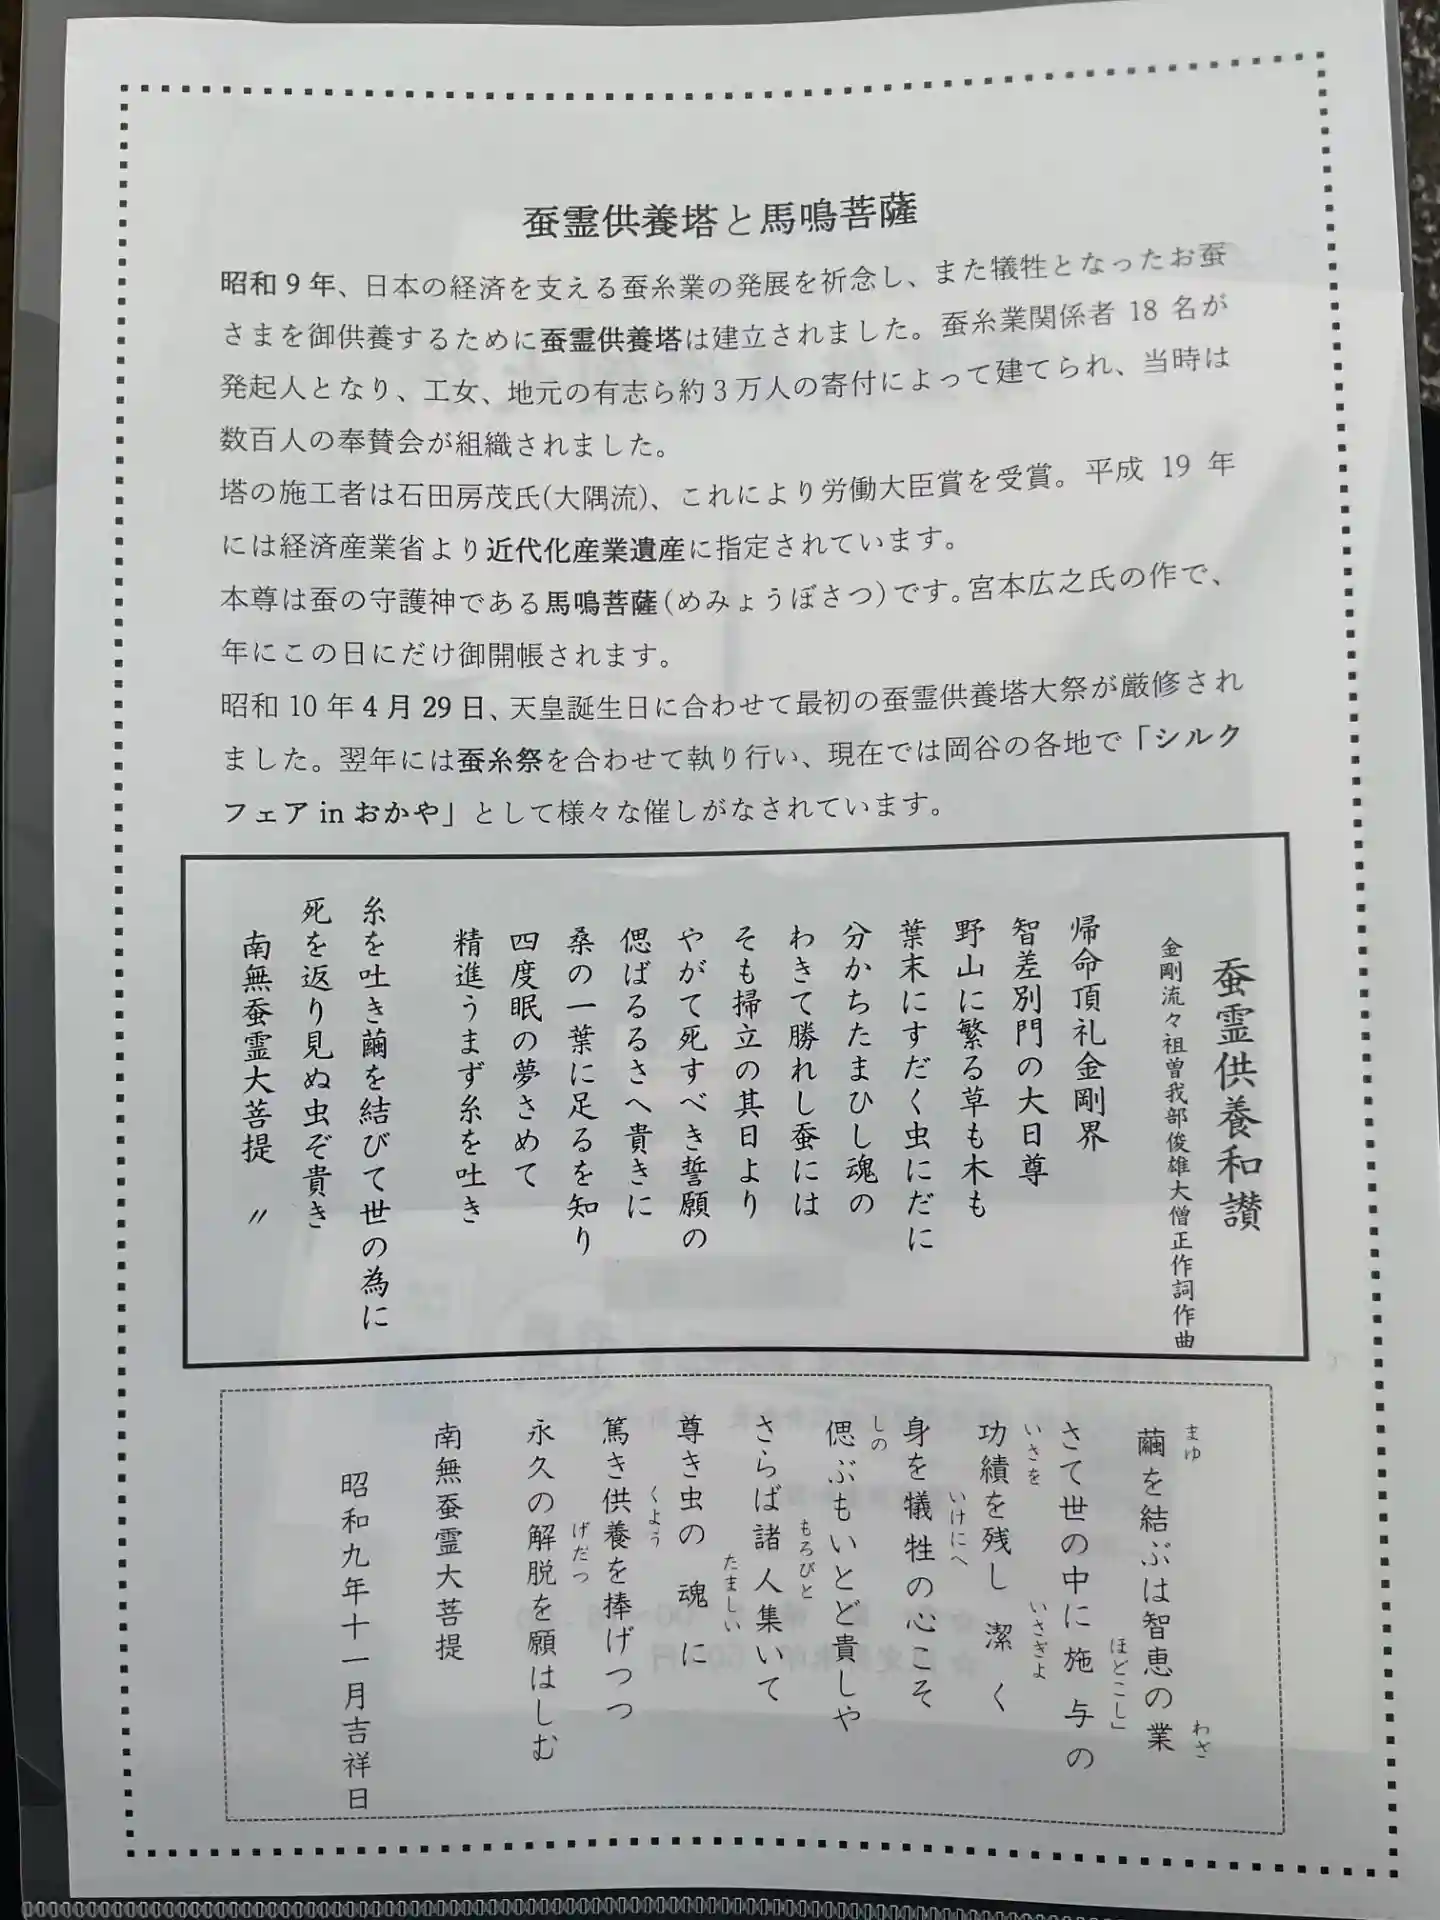 蚕霊供養塔と馬鳴菩薩
昭和9年、日本の経済を支える蚕糸業の発展を祈念し、また犠牲となったお蚕
さまを御供養するために蚕霊供養塔は建立されました。蚕糸業関係者 18 名が
発起人となり、工女、地元の有志ら約3万人の寄付によって建てられ、当時は
数百人の奉賛会が組織されました。
塔の施工者は石田房茂氏(大隅流)、これにより労働大臣賞を受賞。平成 19 年
には経済産業省より近代化産業遺産に指定されています。
本尊は蚕の守護神である馬鳴菩薩(めみょうぼさつ)です。宮本広之氏の作で、
年にこの日にだけ御開帳されます。
昭和 10 年 4 月 29 日、天皇誕生日に合わせて最初の蚕霊供養塔大祭が厳修され
ました。翌年には蚕糸祭を合わせて執り行い、現在では岡谷の各地で「シルク
フェア in おかや」として様々な催しがなされています。
蚕霊供養和讃
金剛流々祖曽我部俊雄大僧正作詞作曲
帰命頂礼金剛界
智差別門の大日尊
野山に繁る草も木も
葉末にすだく虫にだに
分かちたまひし魂の
わきて勝れし蚕には
そも掃立の其日より
やがて死すべき誓願の
偲ばるるさへ貴きに
桑の一葉に足るを知り
四度眠の夢さめて
精進うまず糸を吐き
糸を吐き繭を結びて世の為に
死を返り見ぬ虫ぞ貴き
南無蚕霊大菩提 〃
まゆ わざ
繭を結ぶは智恵の業
ほどこし」
さて世の中に施与の
いさを いさぎよ
功績を残し 潔く
いけにへ
身を犠牲の心こそ
しの
偲ぶもいとど貴しや
もろびと
さらば諸人集いて
たましい
尊き虫の 魂 に
くよう
篤き供養を捧げつつ
げだつ
永久の解脱を願はしむ
南無蚕霊大菩提
昭和九年十一月吉祥日